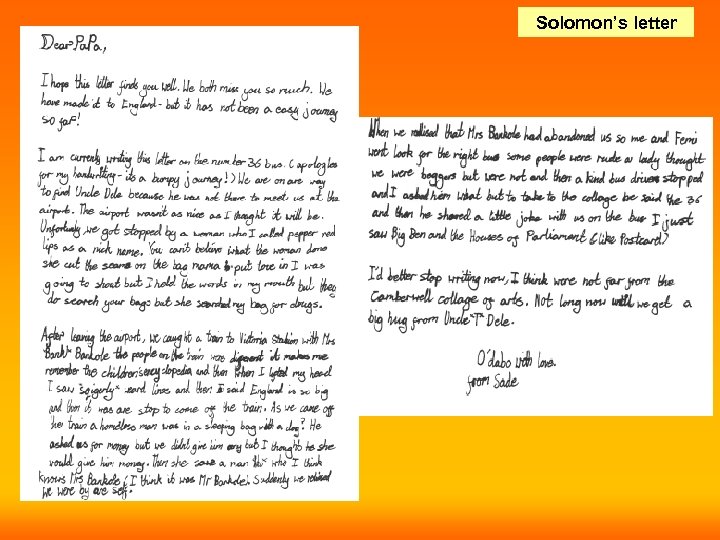 Solomon's letter
Dear PaPa,
I hope this letter finds you well. We both miss you so much. We
have made it to England - but it has not been a easy journey
so far!
I am currently writing this letter on the number 36 bus. (apologies
for my handwriting - its a bumpy journey!) We are on are way
to find Uncle Dele because he was not there to meet us at the
airport. The airport wasn't as nice as I thought it will be.
we got stopped by a woman who I called pepper red
lips as a nick name. You can't believe what the woman done
she cut the seams on the bag mama put love in I was
going to shout but I hold the words in my mouth but they
do search your bags but she searched my bag for drugs.
After leaving the airport, we caught a train to Victoria Station with Mrs
Bankole the people on the train were diferent it makes me
remember the children's encyclopedia and then when I my head
I saw and lines and then I said England is so big
and then it was are stop to come off the train. As we came off
the train a homeless man was in a sleeping bag with a dog? He
asked us for money but we didn't give him any but I thought he she
would give him money. Then she saw a man who I think
knows Mrs Bankole, I think it was Mr Bankole. Suddenly we realised
we were by are self.
When we realised that Mrs Bankole had abandoned us so me and Femi
went look for the right bus some people were rude a lady thought
we were beggers but were not and then a kind bus driver stopped
and I asked him what but to take to the collage he said the 36
and then he shared a little joke with us on the bus I just
saw Big Ben and the Houses of Parliament (like Postcard)
I'd better stop writing now, I think were not far from the
Camberwell collage of artes. Not long now until we get a
big hug from Uncle "T" Dele.
O'dabo with love
from Sade